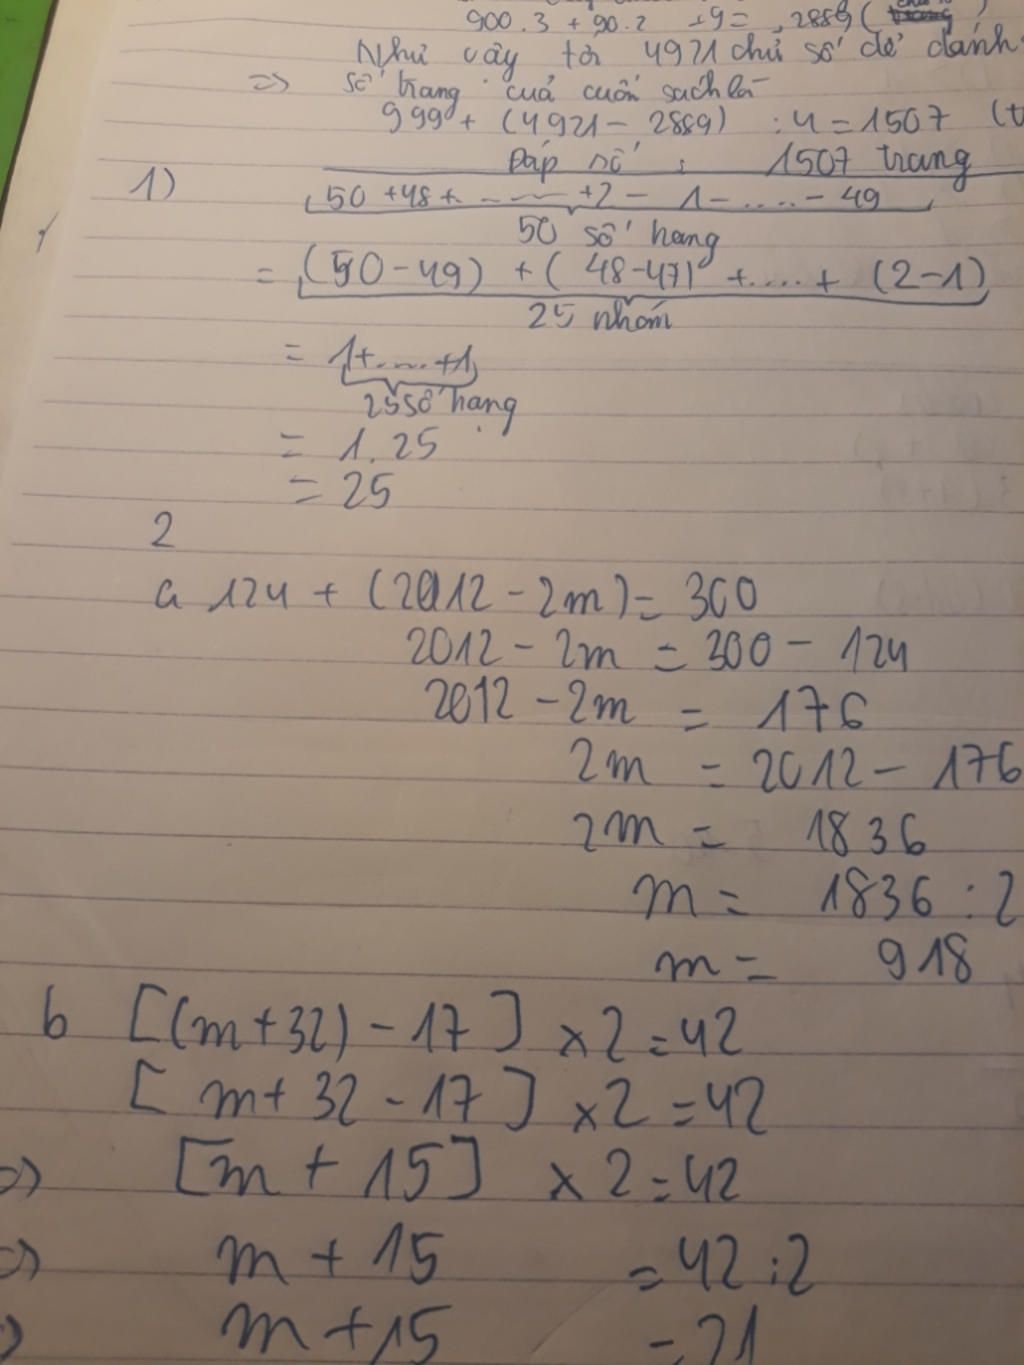 900.3 + 90.2 + 9 = 2889 (
Như vậy từ 4921 chữ số để đánh
=> số trang của cuốn sách là
999 + (4921 - 2889) : 4 = 1507 (t
Đáp số : 1507 trang
1)
50 + 48 + ...... + 2 - 1 - ..... - 49
50 số hạng
= (50 - 49) + ( 48 - 47) + ..... + (2 - 1)
25 nhóm
= 1 + ..... + 1
25 số hạng
= 1.25
= 25
2
a 124 + (2012 - 2m) = 300
2012 - 2m = 300 - 124
2012 - 2m = 176
2m = 2012 - 176
2m = 1836
m = 1836 : 2
m = 918
b [(m + 32) - 17] x 2 = 42
[ m + 32 - 17 ] x 2 = 42
=> [m + 15] x 2 = 42
=> m + 15 = 42 : 2
=> m + 15 = 21